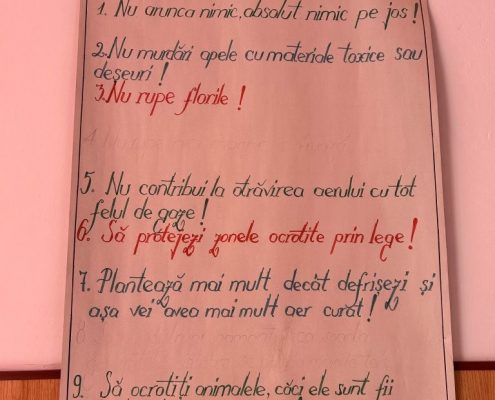 1. Nu arunca nimic, absolut nimic pe jos!
2. Nu murdări apele cu materiale toxice sau
deșeuri!
3. Nu rupe florile!
5. Nu contribui la otrăvirea aerului cu tot
felul de gaze!
6. Să protejezi zonele ocrotite prin lege!
7. Plantează mai mult decât defrișezi și
așa vei avea mai mult aer curat!
9. Să ocrotiți animalele, căci ele sunt fii